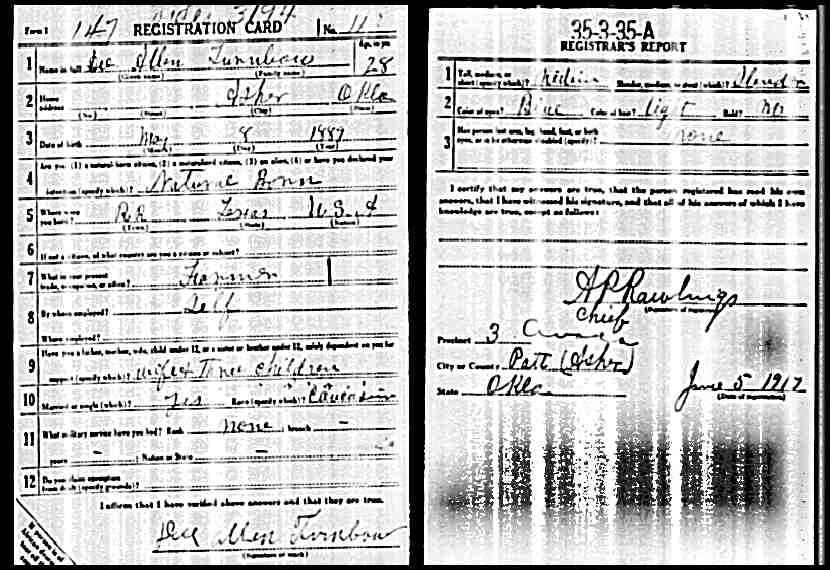 Form 1 147 REGISTRATION CARD No. 11
Age, in yrs.
1 Name in full Allen Turnbow 28
(Given name) (Family name)
2 Home address Asher Okla
(No.) (Street) (City) (State)
3 Date of birth May 8 1889
(Month) (Day) (Year)
4 Are you (1) a natural-born citizen, (2) a naturalized citizen, (3) an alien, (4) or have you declared your
intention (specify which)? Natural Born
5 Where were you born? Texas U.S.A
(Town) (State) (Nation)
6 If not a citizen, of what country are you a citizen or subject?
7 What is your present trade, occupation, or office? Farmer
8 By whom employed? Self
Where employed?
9 Have you a father, mother, wife, child under 12, or a sister or brother under 12, solely dependent on you for
support (specify which)? wife & Three Children
10 Married or single (which)? Yes Race (specify which)? Caucasian
11 What military service have you had? Rank none ; branch -
years - ; Nation or State -
12 Do you claim exemption from draft (specify grounds)?
I affirm that I have verified above answers and that they are true.
Allen Turnbow
(Signature or mark)
35-3-35-A
REGISTRAR'S REPORT
1 Tall, medium, or short (specify which)? Medium Slender, medium, or stout (which)? Slender
2 Color of eyes? Blue Color of hair? Light Bald? No
3 Has person lost arm, leg, hand, foot, or both eyes, or is he otherwise disabled (specify)? none
I certify that my answers are true, that the person registered has read his own
answers, that I have witnessed his signature, and that all of his answers of which I have
knowledge are true, except as follows:
A P Rawlings
(Signature of registrar)
Chief
Precinct 3
City or County Pott (Asher)
State Okla. June 5 1917
(Date of registration)